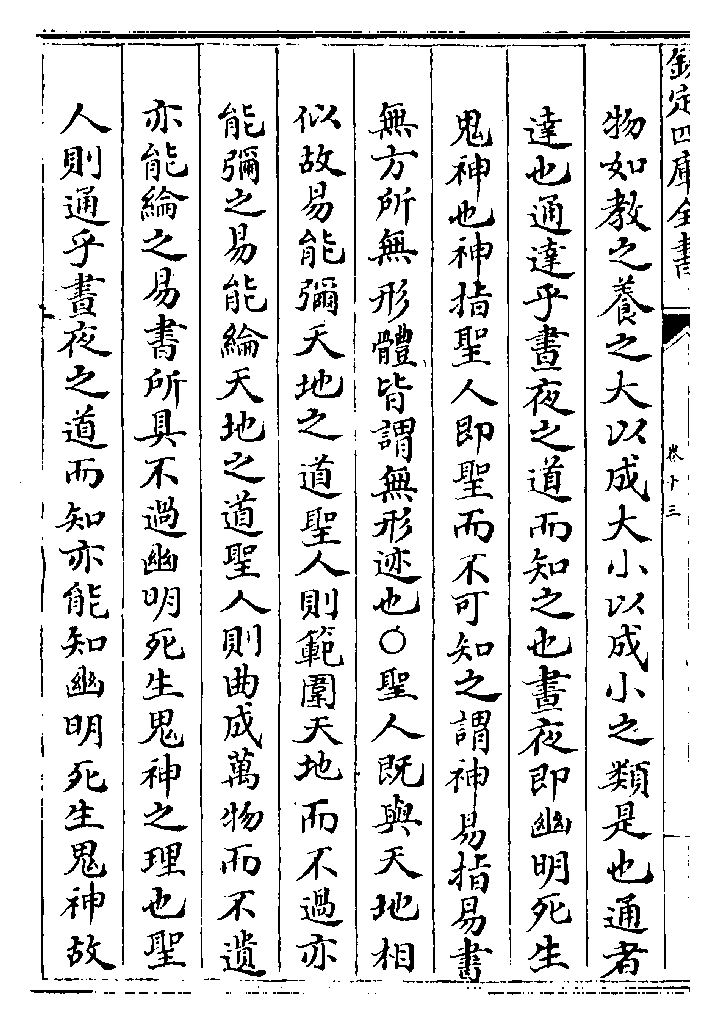 欽定四庫全書
卷十三
物如教之養之大以成大小以成小之類是也通者
達也通達乎晝夜之道而知之也晝夜即幽明死生
鬼神也神指聖人即聖而不可知之謂神易指易書
無方所無形體皆謂無形迹也○聖人既與天地相
似故易能彌天地之道聖人則範圍天地而不過亦
能彌之易能綸天地之道聖人則曲成萬物而不遺
亦能綸之易書所具不過幽明死生鬼神之理也聖
人則通乎晝夜之道而知亦能知幽明死生鬼神故